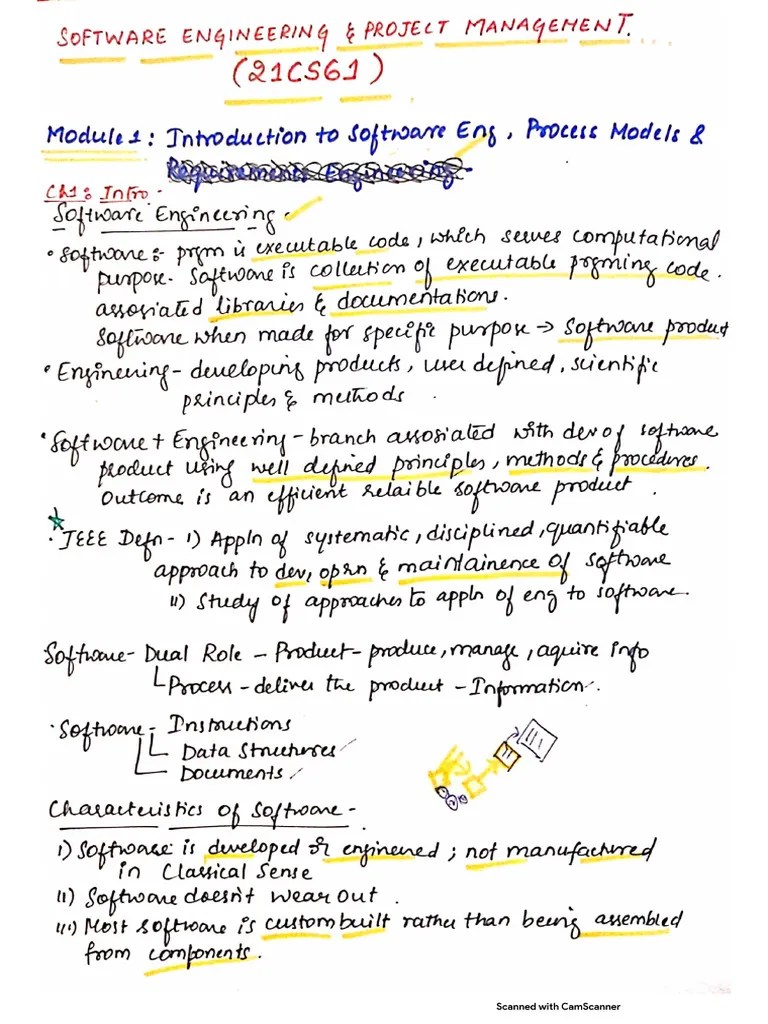 SOFTWARE ENGINEERING & PROJECT MANAGEMENT.
(21CS61)
Module 1 : Introduction to Software Eng, Process Models &
Requirements Engineering.
Ch1 : Intro -
Software Engineering
• Software :- prgm is executable code, which serves computational
purpose. Software is collection of executable prgming code.
assosiated libraries & documentations.
Software when made for specific purpose → Software product
• Enginering - developing products, user defined, scientific
principles & methods.
• Software + Engineering - branch assosiated with dev of software
product using well defined principles, methods & procedures.
Outcome is an efficient relaible software product.
• IEEE Defn - 1) Appln of systematic, disciplined, quantifiable
approach to dev, oprn & maintainence of software
11) Study of approaches to appln of eng to software.
Software - Dual Role - Product - produce, manage, aquire info
Process - deliver the product - Information.
• Software - Instructions
Data Structures
Documents
Characteristics of Software -
1) Software is developed or enginered ; not manufactured
in Classical Sense
11) Software doesn't wear out.
111) Most software is custom built rather than being assembled
from components.
Scanned with CamScanner